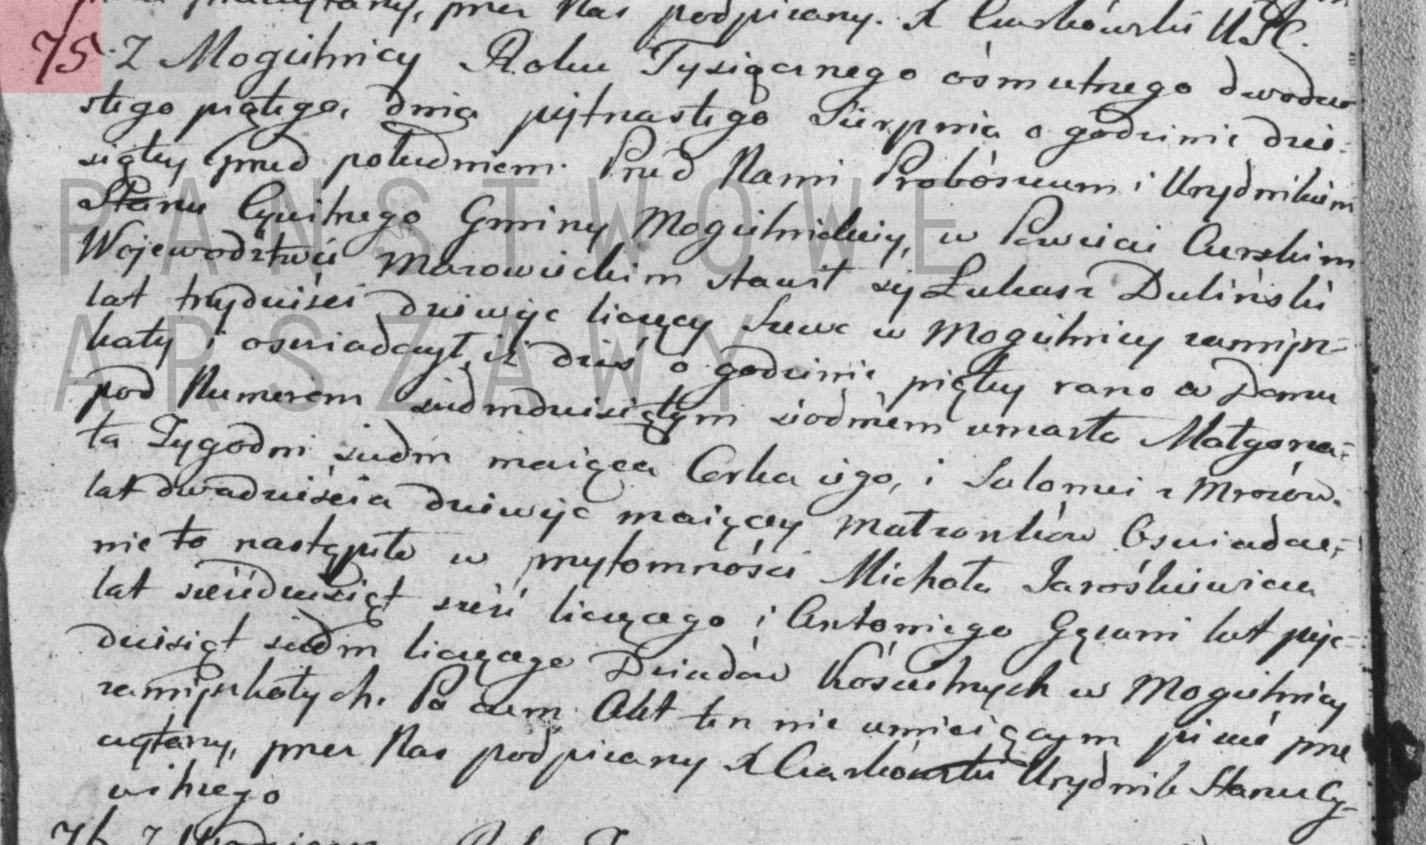 przeczytany, przez Nas podpisany. X Ciaskówski USC.
75. Z Mogielnicy Roku Tysiącznego ośmsetnego dwudzie
stego piątego, dnia piętnastego Sierpnia o godzinie dzie-
siątey przed południem. Przed Nami Probószczem i Urzędnikiem
Stanu Cywilnego Gminy Mogielnickiey, w Powiecie Czerskim
Wojewodztwie Mazowieckim stawił się Łukasz Duliński
lat trzydzieści dziewięc liczący Szewc w Mogielnicy zamiesz-
kały i oswiadczył, iż dziś o godzinie piątey rano w Domu
pod Numerem siedmdziesiątym siodmem umarła Małgorza-
ta Tygodni siedm maiąca Corka iego, i Salomei z Mrozów
lat dwadzieścia dziewięc maiącey Małzonków. Oswiadcze-
nie to nastąpiło w przytomności Michała Jarośkiewicza
lat sześcdziesiąt sześć liczącego i Antoniego Gęsani lat pięc-
dziesiąt siedm liczącego Dziadów kościelnych w Mogielnicy
zamieszkałych. Po czem Akt ten nie umieiącym pisać prze
czytany, przez Nas podpisany X Ciaskówski Urzędnik Stanu Cy-
wilnego
76. Z Roku
PAŃSTWOWE
ARSZAWY